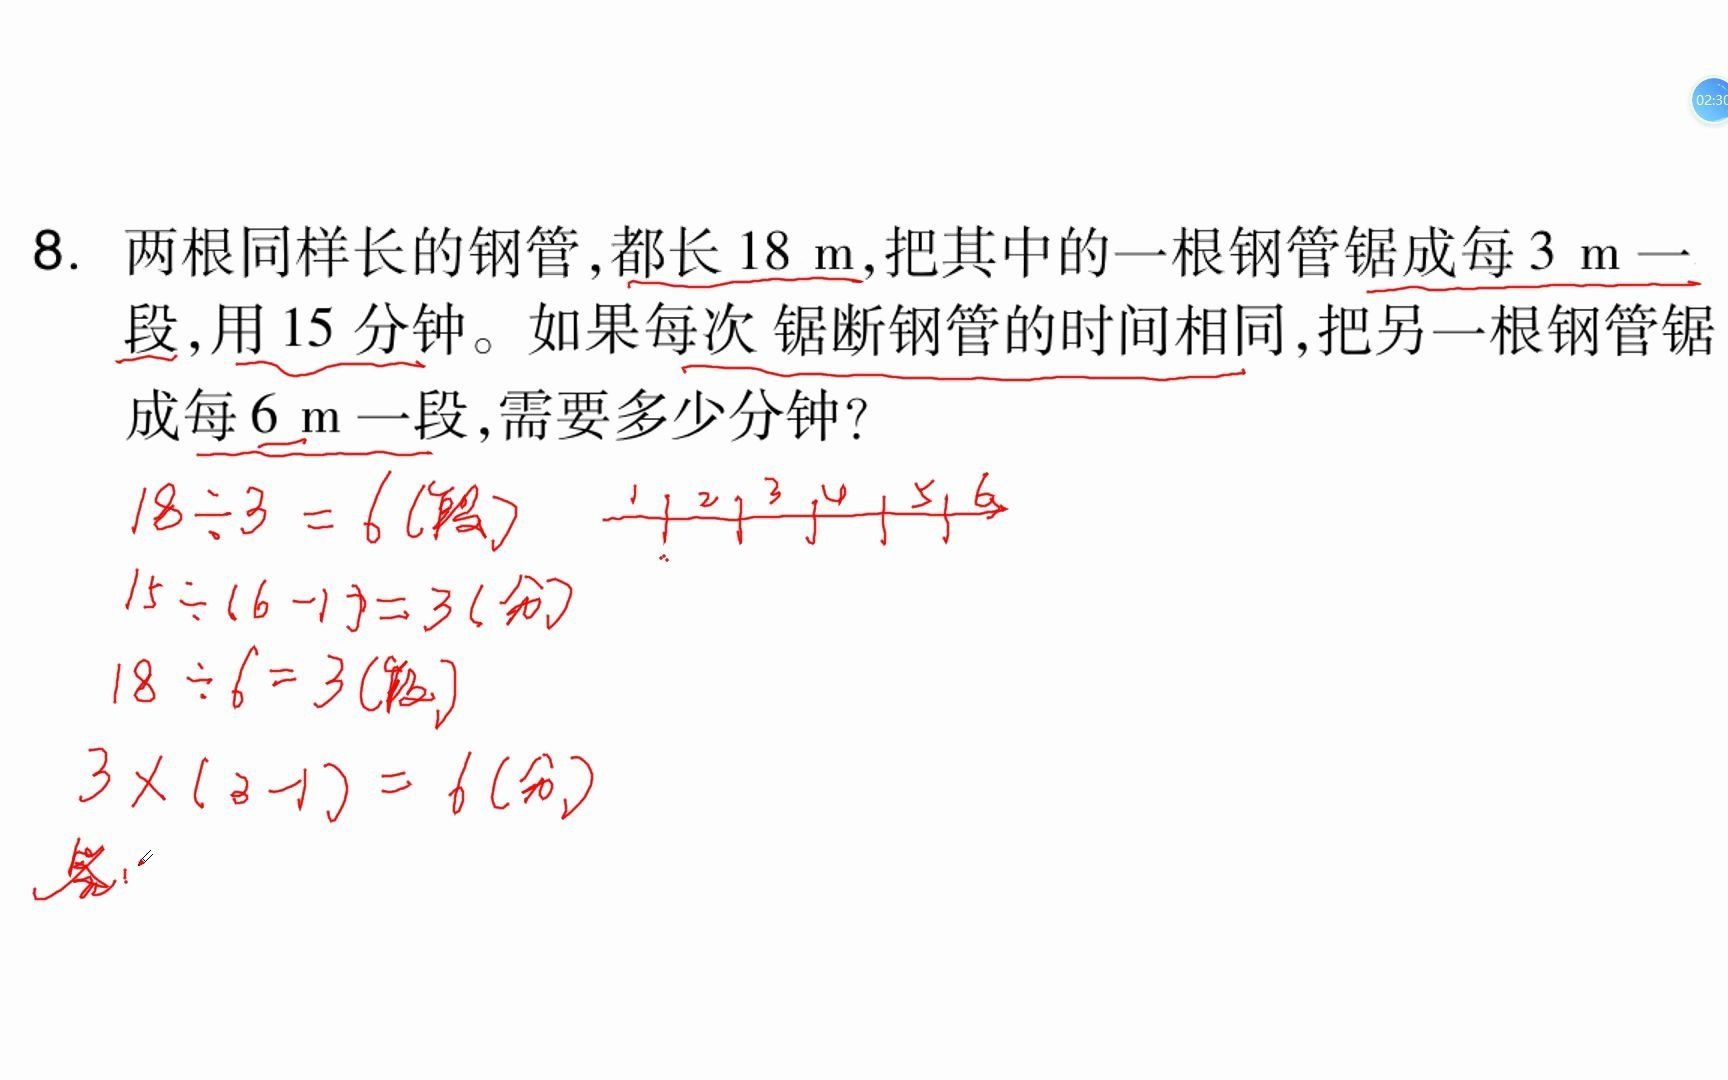 02:30
8. 两根同样长的钢管,都长 18 m,把其中的一根钢管锯成每 3 m 一
段,用 15 分钟。如果每次 锯断钢管的时间相同,把另一根钢管锯
成每 6 m 一段,需要多少分钟?
18÷3=6(段)
1 2 3 4 5 6
15÷(6-1)=3(分)
18÷6=3(段)
3×(3-1)=6(分)
答: